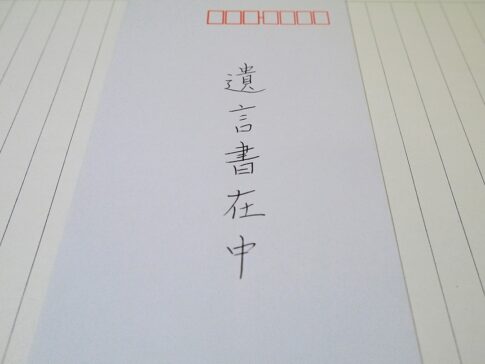 遺言書在中